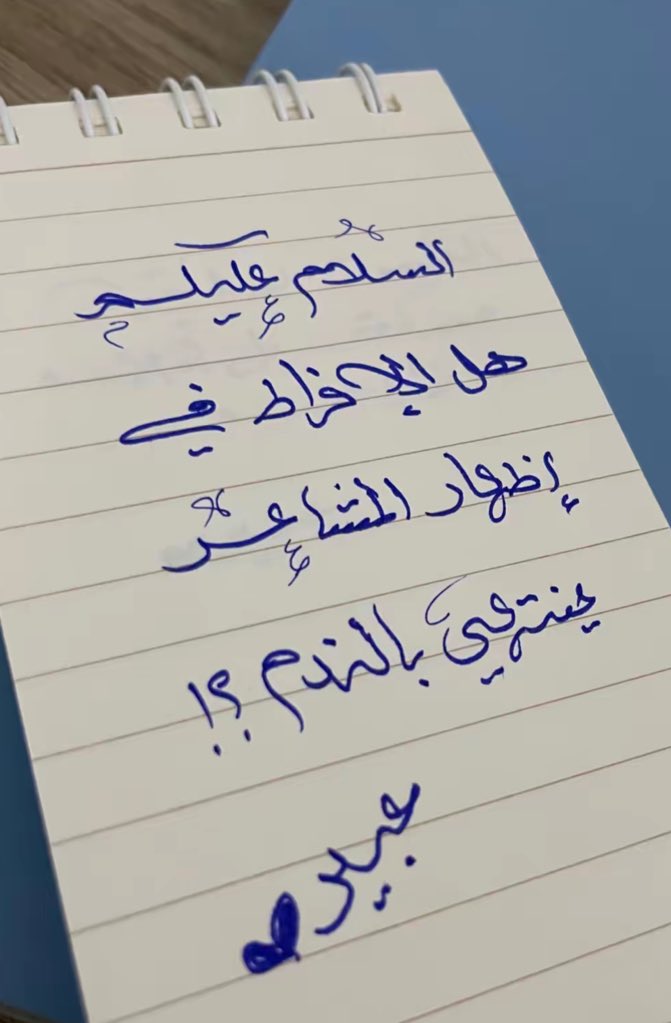 السلام عليكم
هل الإفراط في
إظهار المشاعر
ينتهي بالندم ؟!
عبير